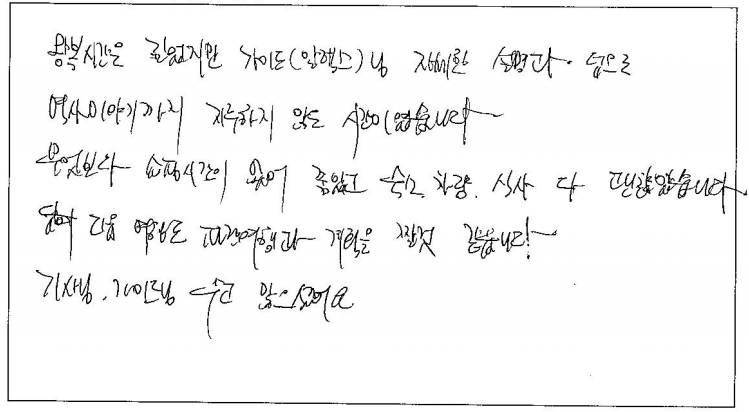 왕복시간은 길었지만 가이드(알렉스)님 자세한 설명과 덤으로
역사이야기까지 지루하지 않는 시간이였습니다
무엇보다 쇼핑시간이 없어 좋았고 숙소, 차량, 식사 다 괜찮았습니다
다음 여행도 계획을 짤것 같습니다!
기사님, 가이드님 수고 많으셨어요